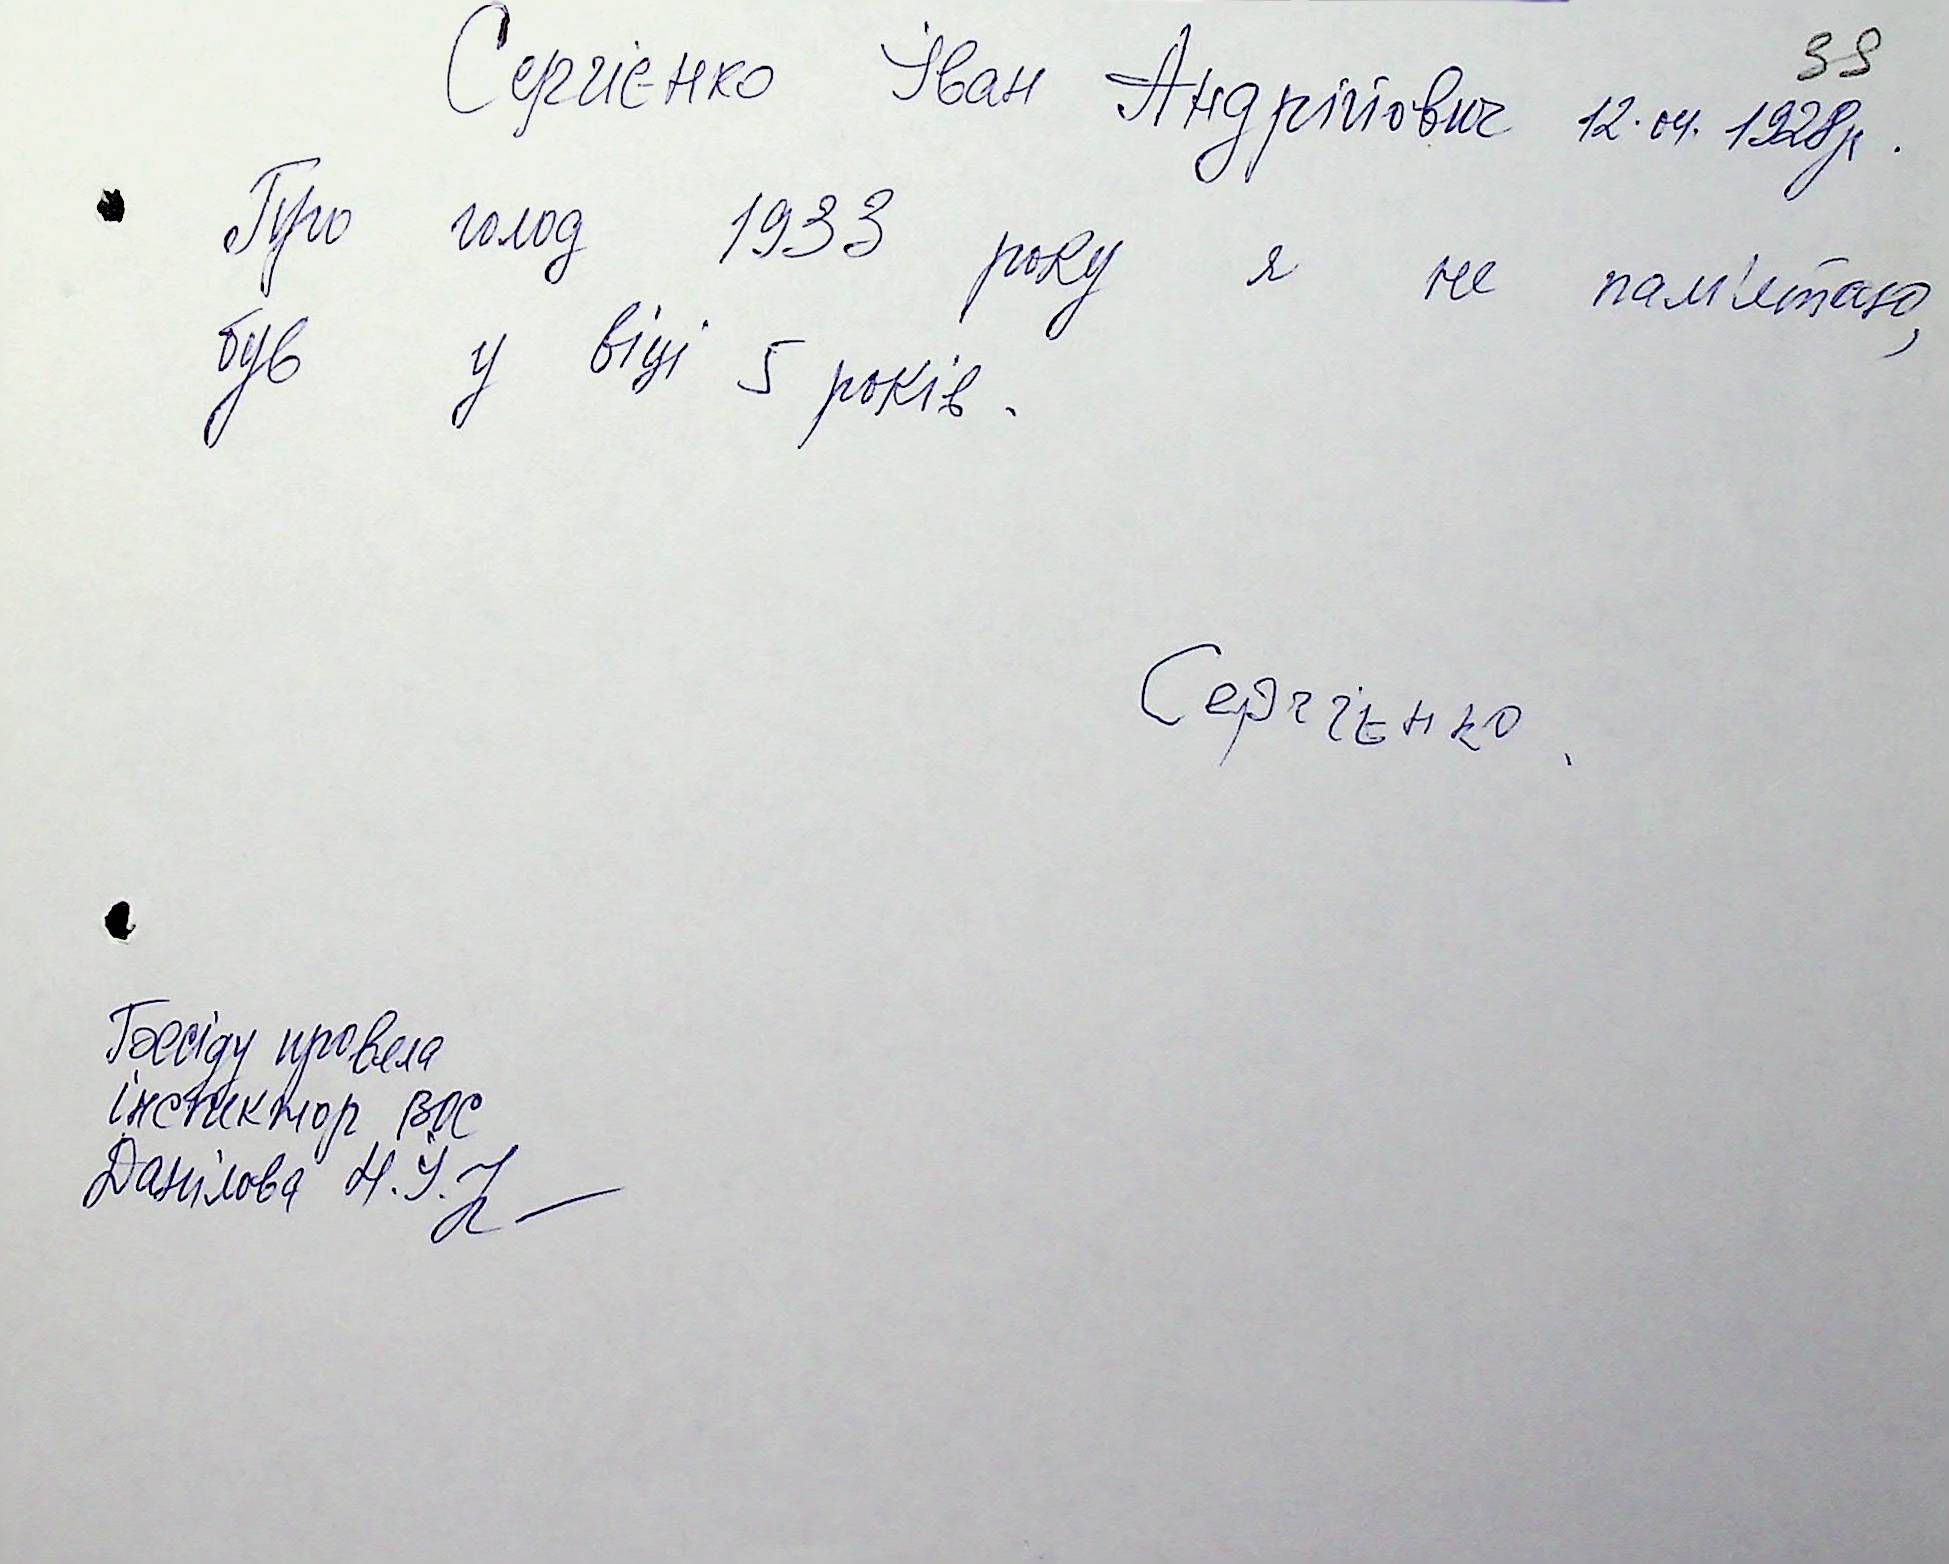 39
Сергієнко Іван Андрійович 12.04.1928р.
Про голод 1933 року я не пам'ятаю,
був у віці 5 років.
Сергієнко.
Бесіду провела
інспектор ВОС
Данілова Н.І.